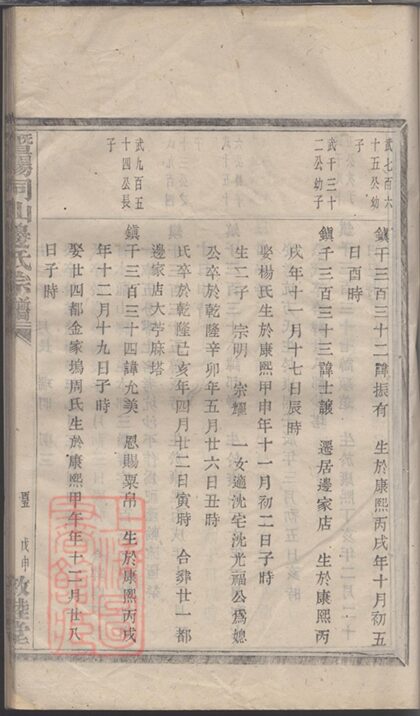 武七百六
十五公幼
子
鎭千三百三十二諱振有　生於康熙丙戌年十月初五
日酉時
武千三十
二公幼子
鎭千三百三十三諱士讓　遷居邊家店　生於康熙丙
戌年十一月十七日辰時
娶楊氏生於康熙甲申年十一月初二日子時
生二子　宗明　宗耀　一女適沈宅沈光福公爲媳
公卒於乾隆辛卯年五月廿六日丑時
氏卒於乾隆己亥年四月廿二日寅時　合葬廿一都
邊家店大苧麻塔
武九百五
十四公長
子
鎭千三百三十四諱允美　恩賜粟帛　生於康熙丙戌
年十二月十九日子時
娶廿四都金家塢周氏生於康熙甲午年十二月廿八
日子時
暨陽同山邊氏宗譜
戊申
敦睦堂